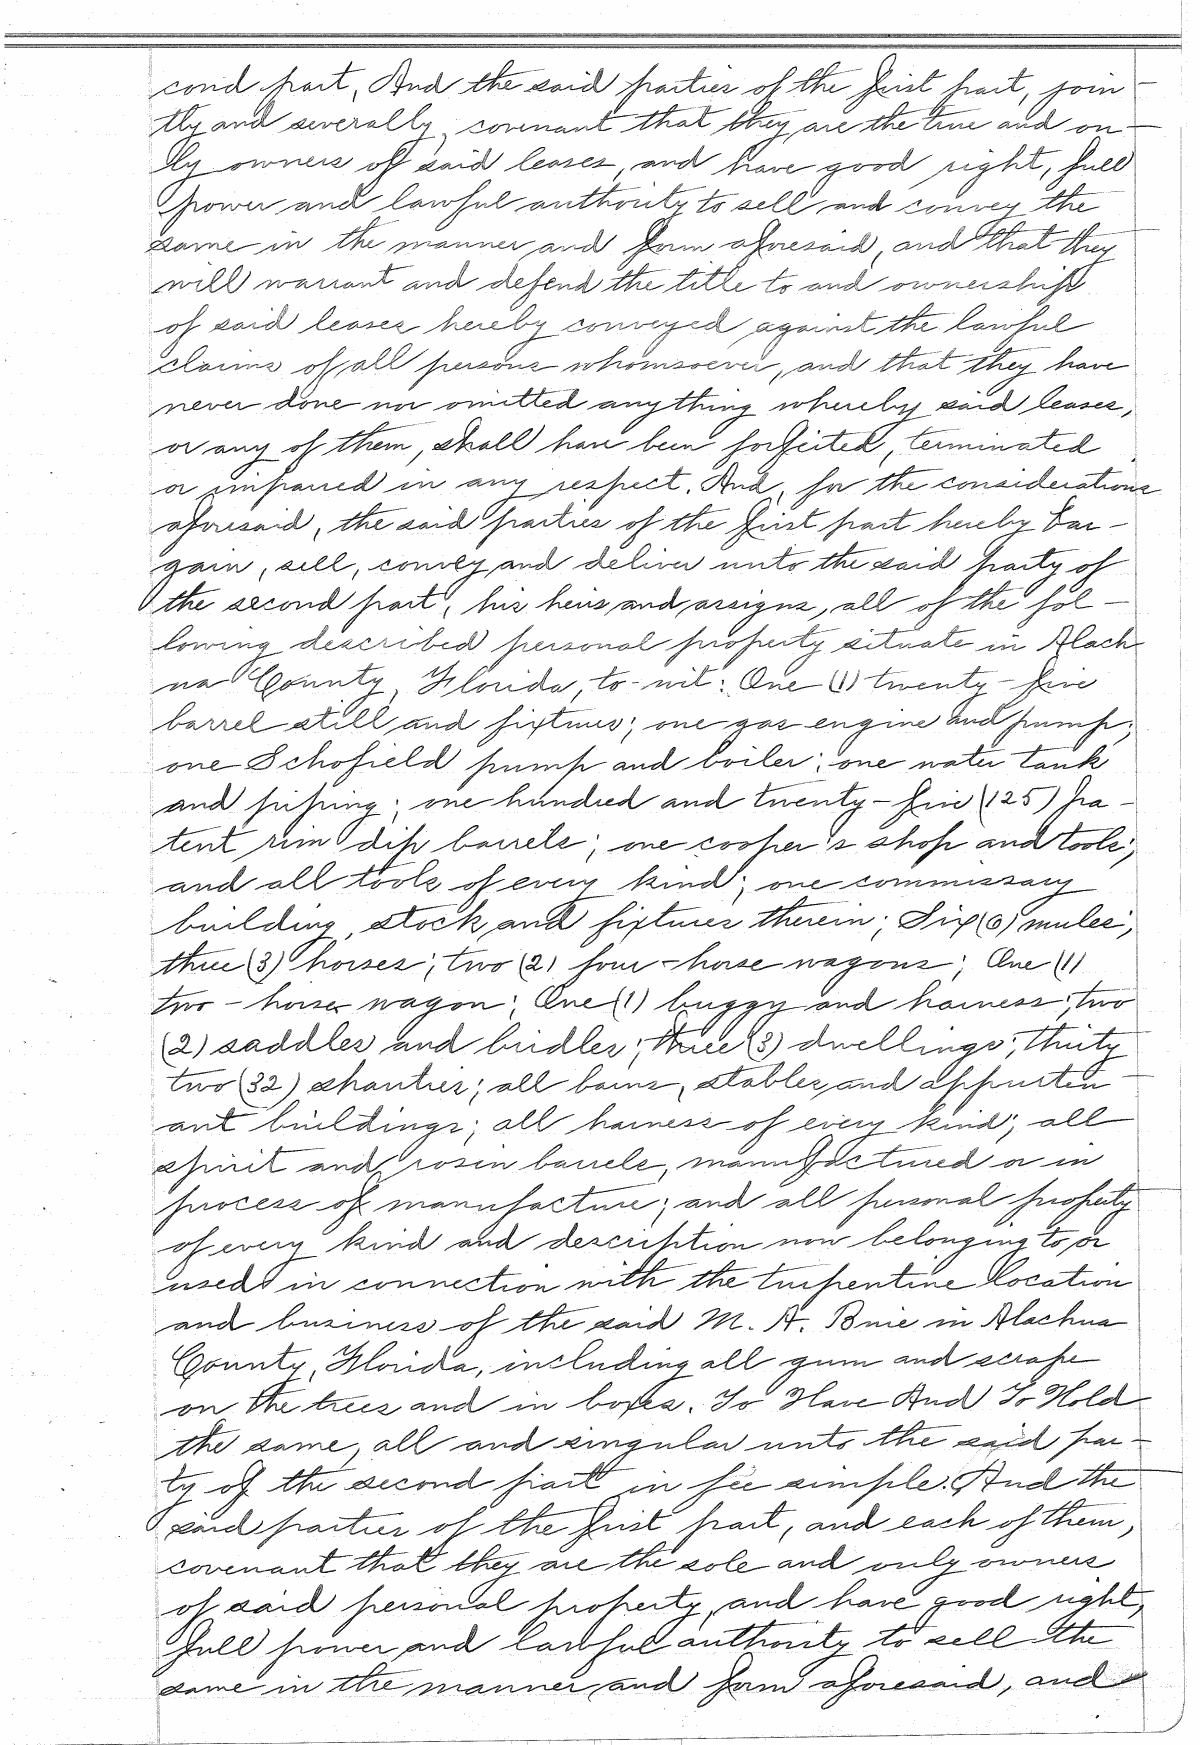 cond part, And the said parties of the first part, join
tly and severally, covenant that they are the true and on-
ly owners of said leases, and have good right, full
power and lawful authority to sell and convey the
same in the manner and form aforesaid, and that they
will warrant and defend the title to and ownership
of said leases hereby conveyed against the lawful
claims of all persons whomsoever, and that they have
never done nor omitted anything whereby said leases,
or any of them, shall have been forfeited, terminated
or impaired in any respect. And, for the considerations
aforesaid, the said parties of the first part hereby bar-
gain, sell, convey and deliver unto the said party of
the second part, his heirs and assigns, all of the fol-
lowing described personal property situate in Alach
ua County, Florida, to-wit: One (1) twenty-five
barrel still and fixtures; one gas engine and pump;
one Schofield pump and boiler; one water tank
and piping; one hundred and twenty-five (125) pa-
tent rim dip barrels; one cooper's shop and tools;
and all tools of every kind; one commissary
building, stock and fixtures therein; Six (6) mules;
three (3) horses; two (2) four-horse wagons; One (1)
two-horse wagon; One (1) buggy and harness; two
(2) saddles and bridles; three (3) dwellings; thirty
two (32) shanties; all barns, stables and appurten-
ant buildings; all harness of every kind; all
spirit and rosin barrels, manufactured or in
process of manufacture; and all personal property
of every kind and description now belonging to or
used in connection with the turpentine location
and business of the said M. A. Brie in Alachua
County, Florida, including all gum and scrape
on the trees and in boxes. To Have And To Hold
the same, all and singular unto the said par-
ty of the second part in fee simple. And the
said parties of the first part, and each of them,
covenant that they are the sole and only owners
of said personal property, and have good right,
full power and lawful authority to sell the
same in the manner and form aforesaid, and